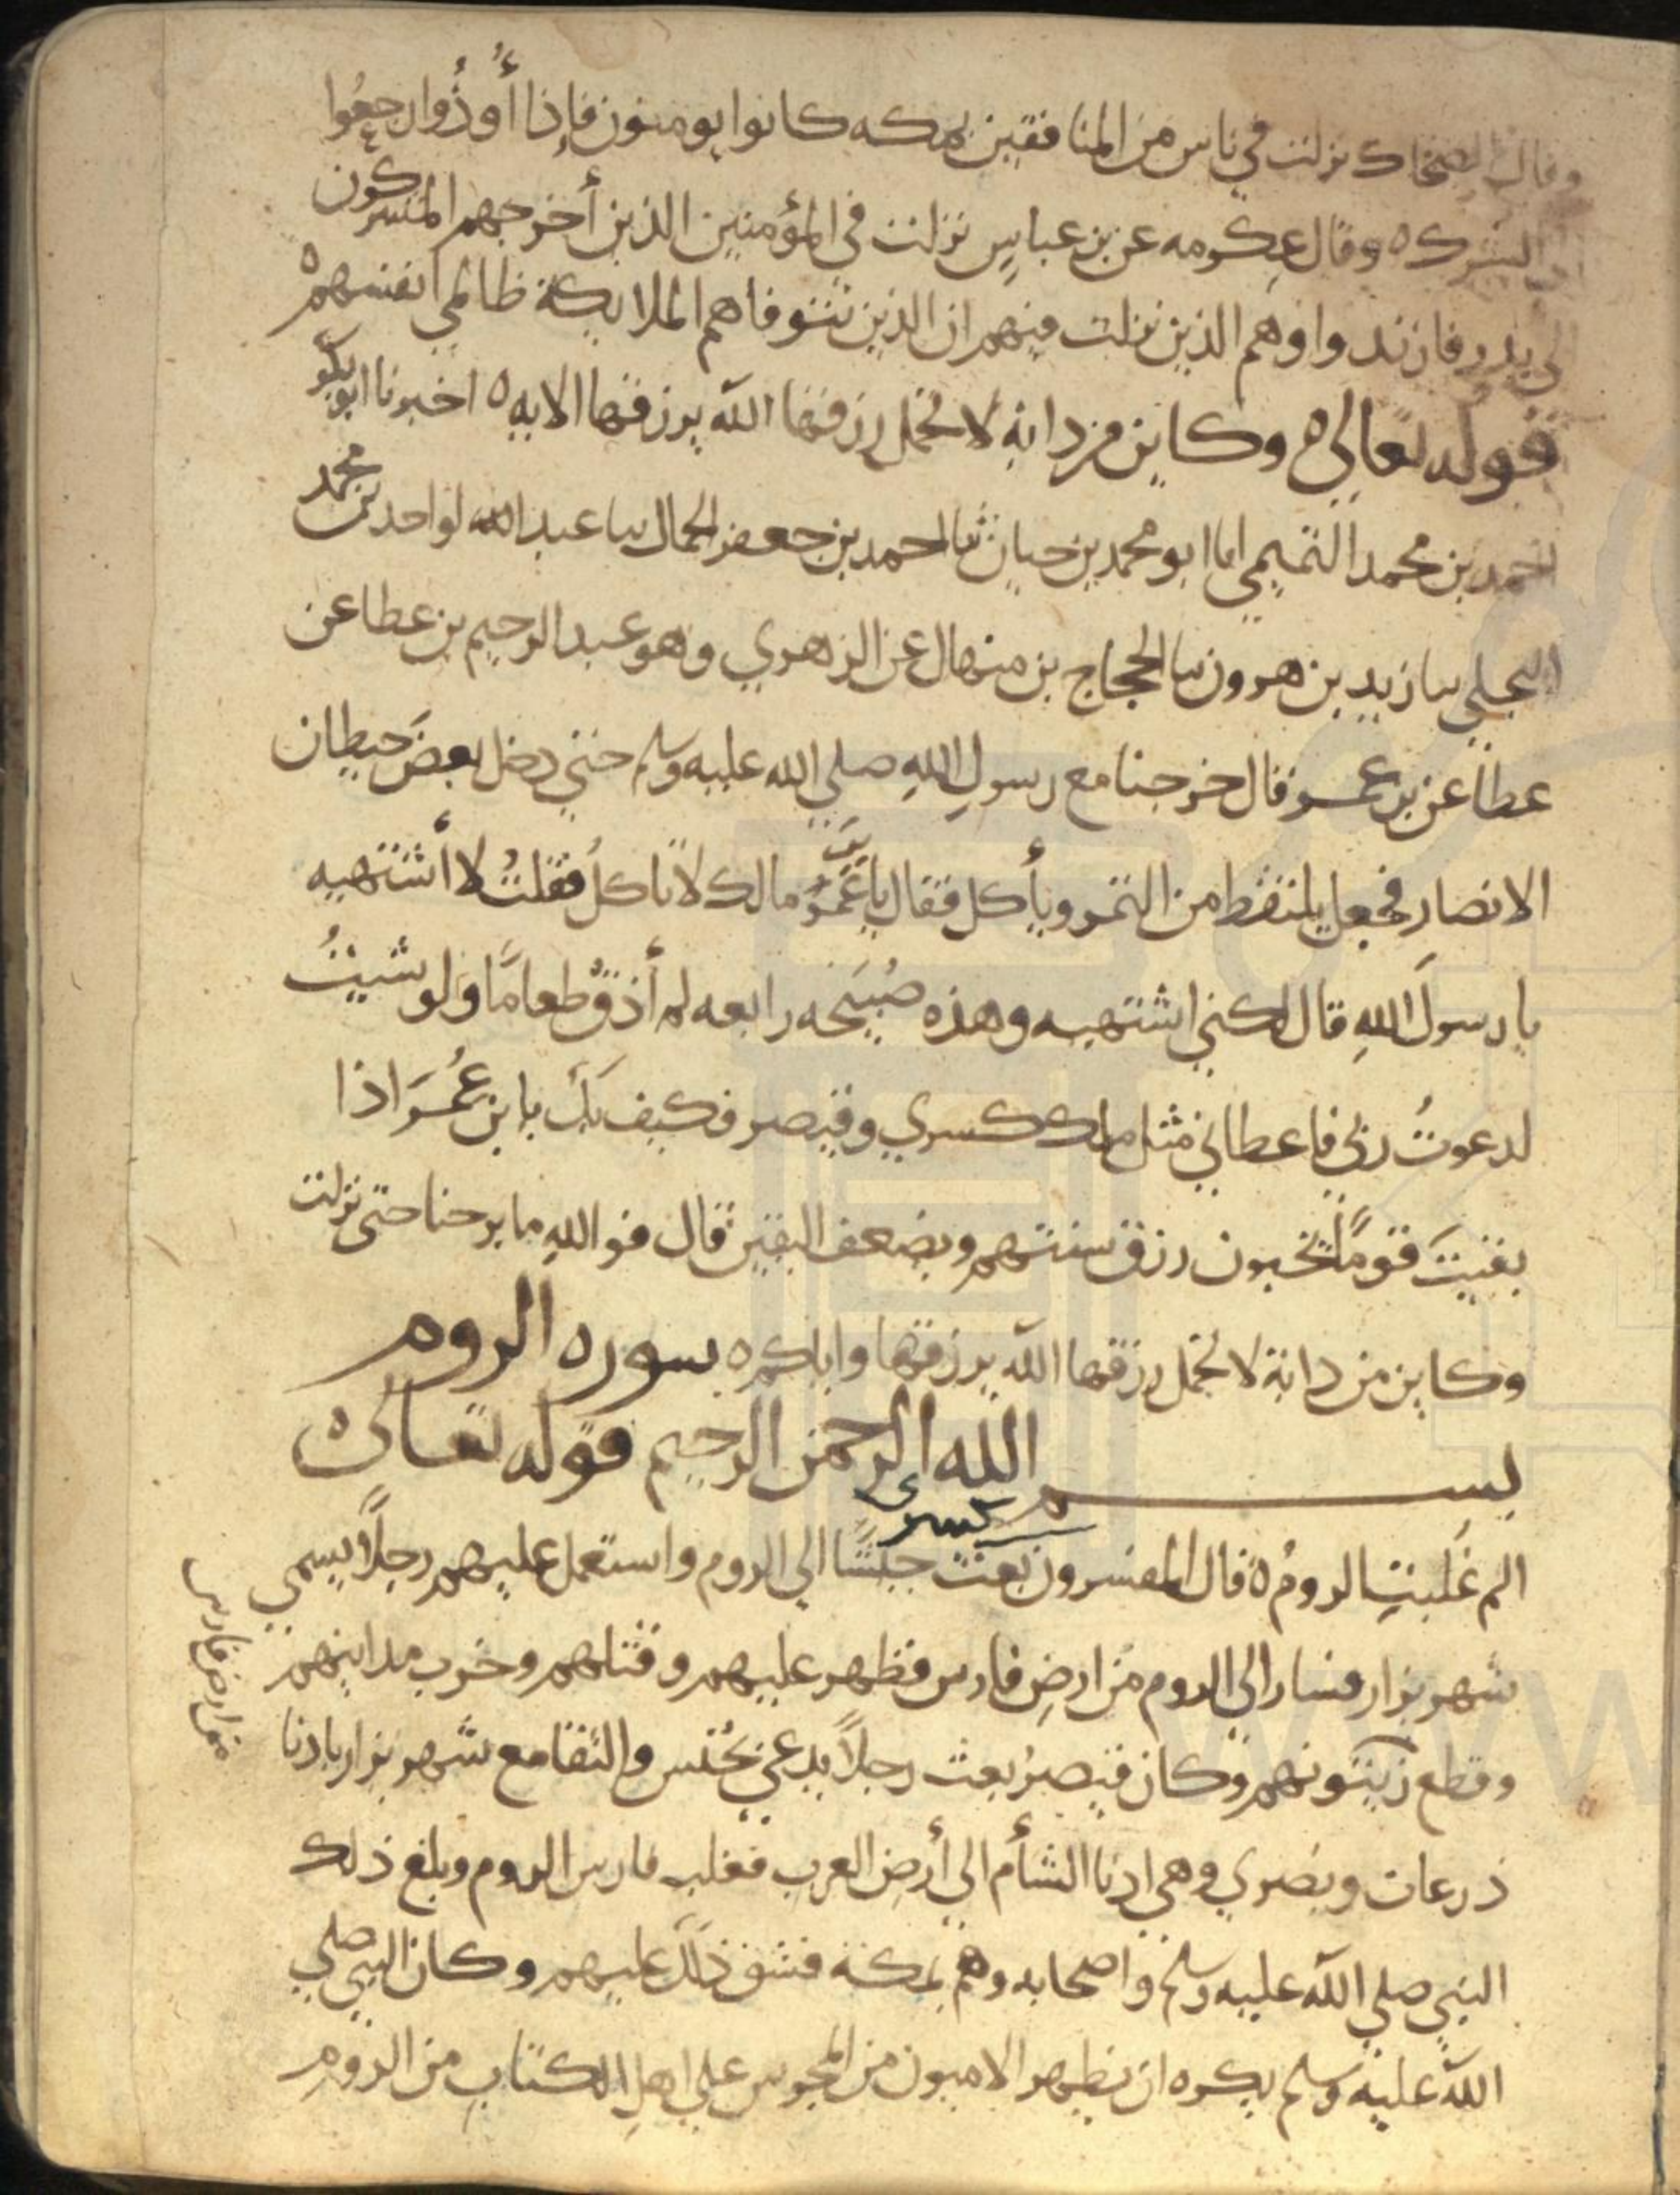 وقال الضحاك نزلت في ناس من المنافقين بمكه كانوا يومنون فإذا أُوذُوا رجعُوا
الى الشرك ٥ وقال عِكرمه عن بن عباسٍ نزلت في المؤمنين الذين أخرجهم المشركون
الى بدر فارتدوا وهم الذين نزلت فيهم ان الذين تتوفاهم الملايكة ظالمي انفسهم ٥
قوله تعالى ٥ وكاين من دابةٍ لا تحمل رزقها الله يرزقها الايه ٥ اخبرنا ابو بكر
احمد بن محمد التميمي انا ابو محمد بن حيان ثنا احمد بن جعفر الجمال ثنا عبد الواحد بن محمد
البجلي ثنا زيد بن هرون ثنا الحجاج بن منهال عن الزهري وهو عبد الرحيم بن عطا عن
عطا عن بن عمر قال خرجنا مع رسولِ اللهِ صلي الله عليه وسلم حتي دخل بعضَ حيطان
الانصار فجعل يلتقط من التمر ويأكل فقال يا بن عُمَر مالك لا تاكلُ فقلتُ لا أشتهيه
يا رسولَ اللهِ قال لكني اشتهيه وهذه صُبيحَه رابعه لم أذقْ طعامًا ولو شيتُ
لدعوتُ ربي فاعطاني مثل ملك كسري وقيصر فكيف بك يا بن عُمَرَ اذا
بقيتَ قومًا يخبون رزق سنتهم ويضعف اليقين قال فو اللهِ ما برحنا حتى نزلت
وكاين من دابة لا تحمل رزقها الله يرزقها واياكم ٥ سوره الروم
بسم الله الرحمن الرحيم قوله تعالى ٥
كسرى
الم غُلبتِ الرومُ ٥ قال المفسرون بعث جيشًا الي الروم واستعمل عليهم رجلاً يسمي
شهر بزار فسار الي الروم من ارضِ فارس فظهر عليهم وقتلهم وخرب مداينهم
من ارض فارس
وقطع زيتونهم وكان قيصرُ بعث رجلاً يدعي يُحنس والتقا مع شهر بزار بادنا
ذرعات وبصري وهي ادنا الشأم الي أرض العرب فغلب فارس الروم وبلغ ذلك
النبي صلي الله عليه وسلم واصحابه وهم بمكة فشق ذلك عليهم وكان النبي صلي
الله عليه وسلم يكره ان يظهر الاميون من المجوس علي اهلِ الكتابِ من الرومِ